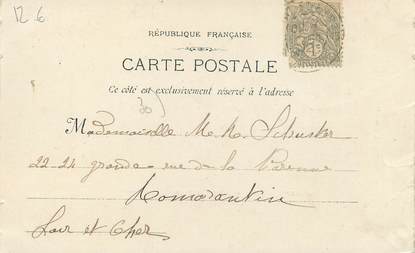 12.6
RÉPUBLIQUE FRANÇAISE
CARTE POSTALE
Ce côté est exclusivement réservé à l'adresse
Mademoiselle M. N. Schuster
22-24 grande rue de la
Romorantin
Loir et Cher